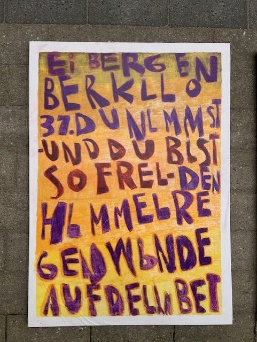 Ei BERGEN
BERKLLO
37. DU NIMMST
-UND DU BIST
SO FREI-DEN
HIMMEL RE
GEN WINDE
AUF DEIN BET